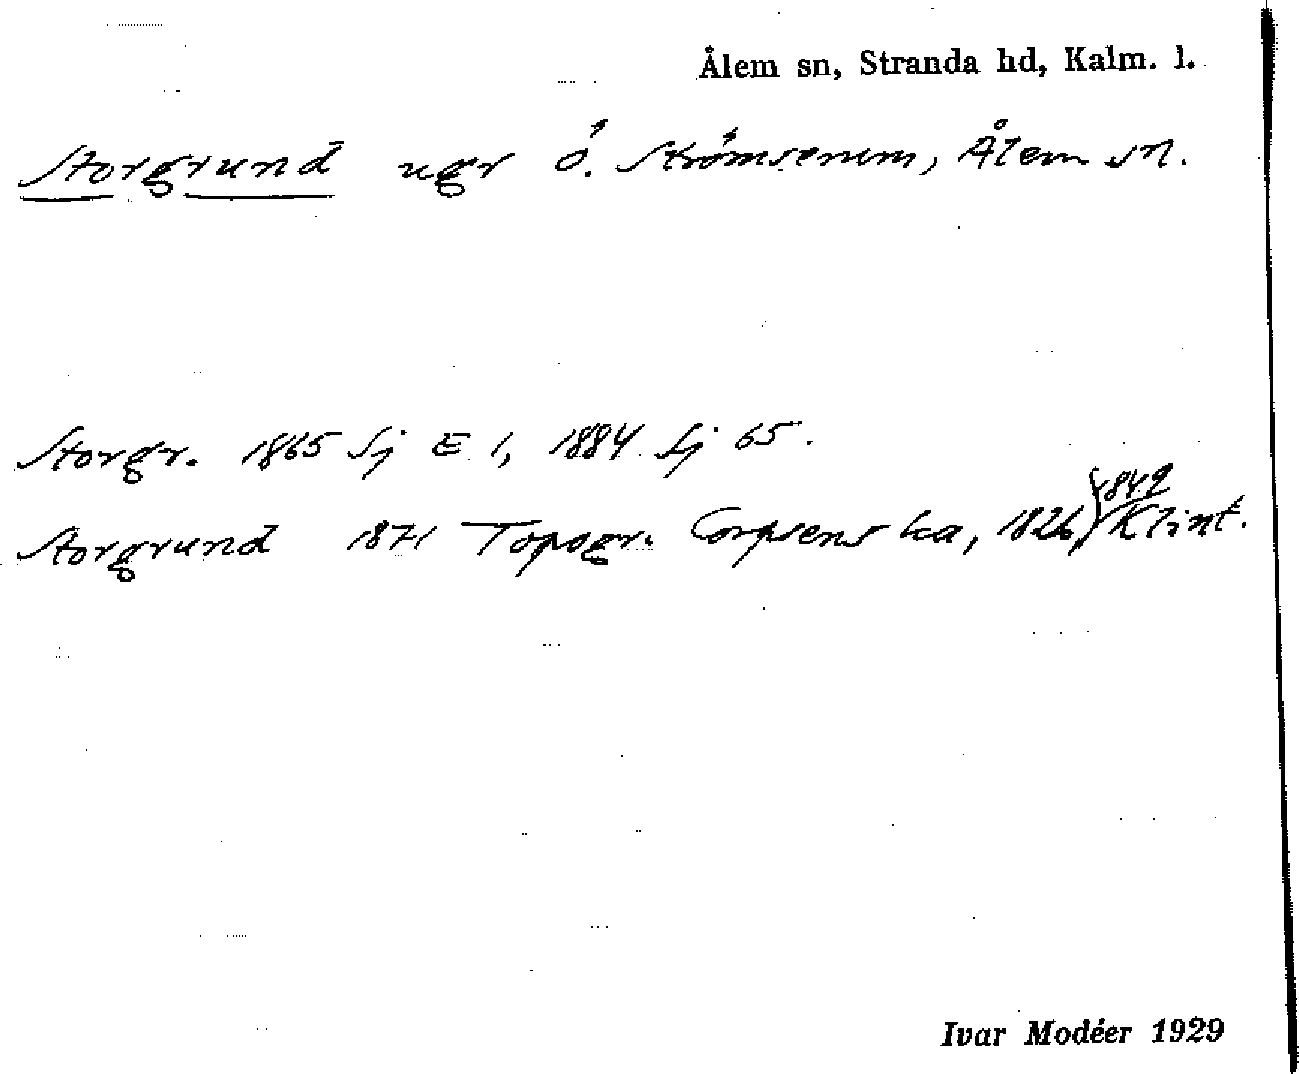 Ålem sn, Stranda hd, Kalm. l.
Storgrund ugr Ö. Strömserum, Ålem sn.
Storgr. 1865 Sj E 1, 1884 Sj 65.
1849
Storgrund 1871 Topogr. Corpsens ka, 1826, Klint.
Ivar Modéer 1929